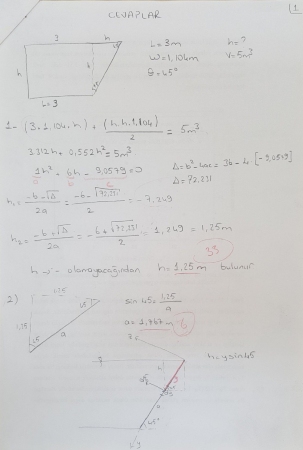 CEVAPLAR
1
3
h
45°
L = 3m
h = ?
w = 1,104m
V = 5m³
θ = 45°
h
h
L = 3
1- (3.1.104.h) + (h.h.1,104)/2 = 5m³
3.312h + 0,552h² = 5m³
1h² + 6h - 9,0579 = 0
Δ = b² - 4ac = 36 - 4.[-9,0579]
Δ = 72,231
h₁ = -b - √Δ / 2a = -6 - √72,231 / 2 = -7,249
h₂ = -b + √Δ / 2a = -6 + √72,231 / 2 = 1,249 = 1,25m
33
h "-" olamayacağından h = 1,25m bulunur
2)
1,25
45
sin 45 = 1,25/a
1,25
a
45
a = 1,767m
6
h = y sin45
y
45